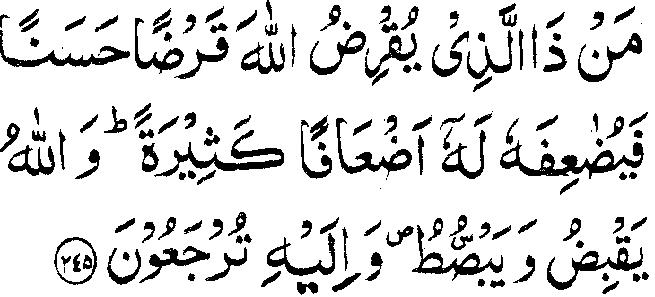 مَنْ ذَا الَّذِیْ یُقْرِضُ اللّٰهَ قَرْضًا حَسَنًا
فَیُضٰعِفَهٗ لَهٗۤ اَضْعَافًا كَثِیْرَةًؕ وَ اللّٰهُ
یَقْبِضُ وَ یَبْصُۜطُ۪ وَ اِلَیْهِ تُرْجَعُوْنَ ﴿۲۴۵﴾